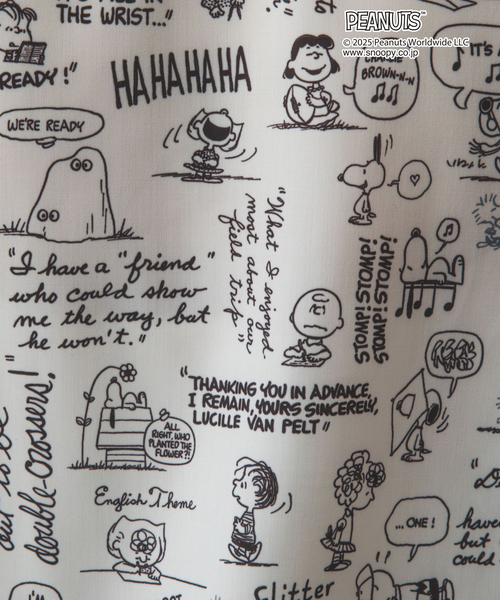 THE WRIST..."
PEANUTS™
© 2025 Peanuts Worldwide LLC
www.snoopy.co.jp
READY!"
HAHAHAHA
CHARLIE
BROWN-N-N
IT'S
WE'RE READY
"I have a "friend"
who could show
me the way, but
he won't."
"What I enjoyed
most about our
field trip"
STOMP! STOMP!
STOMP! STOMP!
"THANKING YOU IN ADVANCE,
I REMAIN, YOURS SINCERELY,
LUCILLE VAN PELT"
ALL
RIGHT, WHO
PLANTED THE
FLOWER?!
to be
double-crossers!"
English Theme
...ONE!
haven
but
could
I'M
Glitter